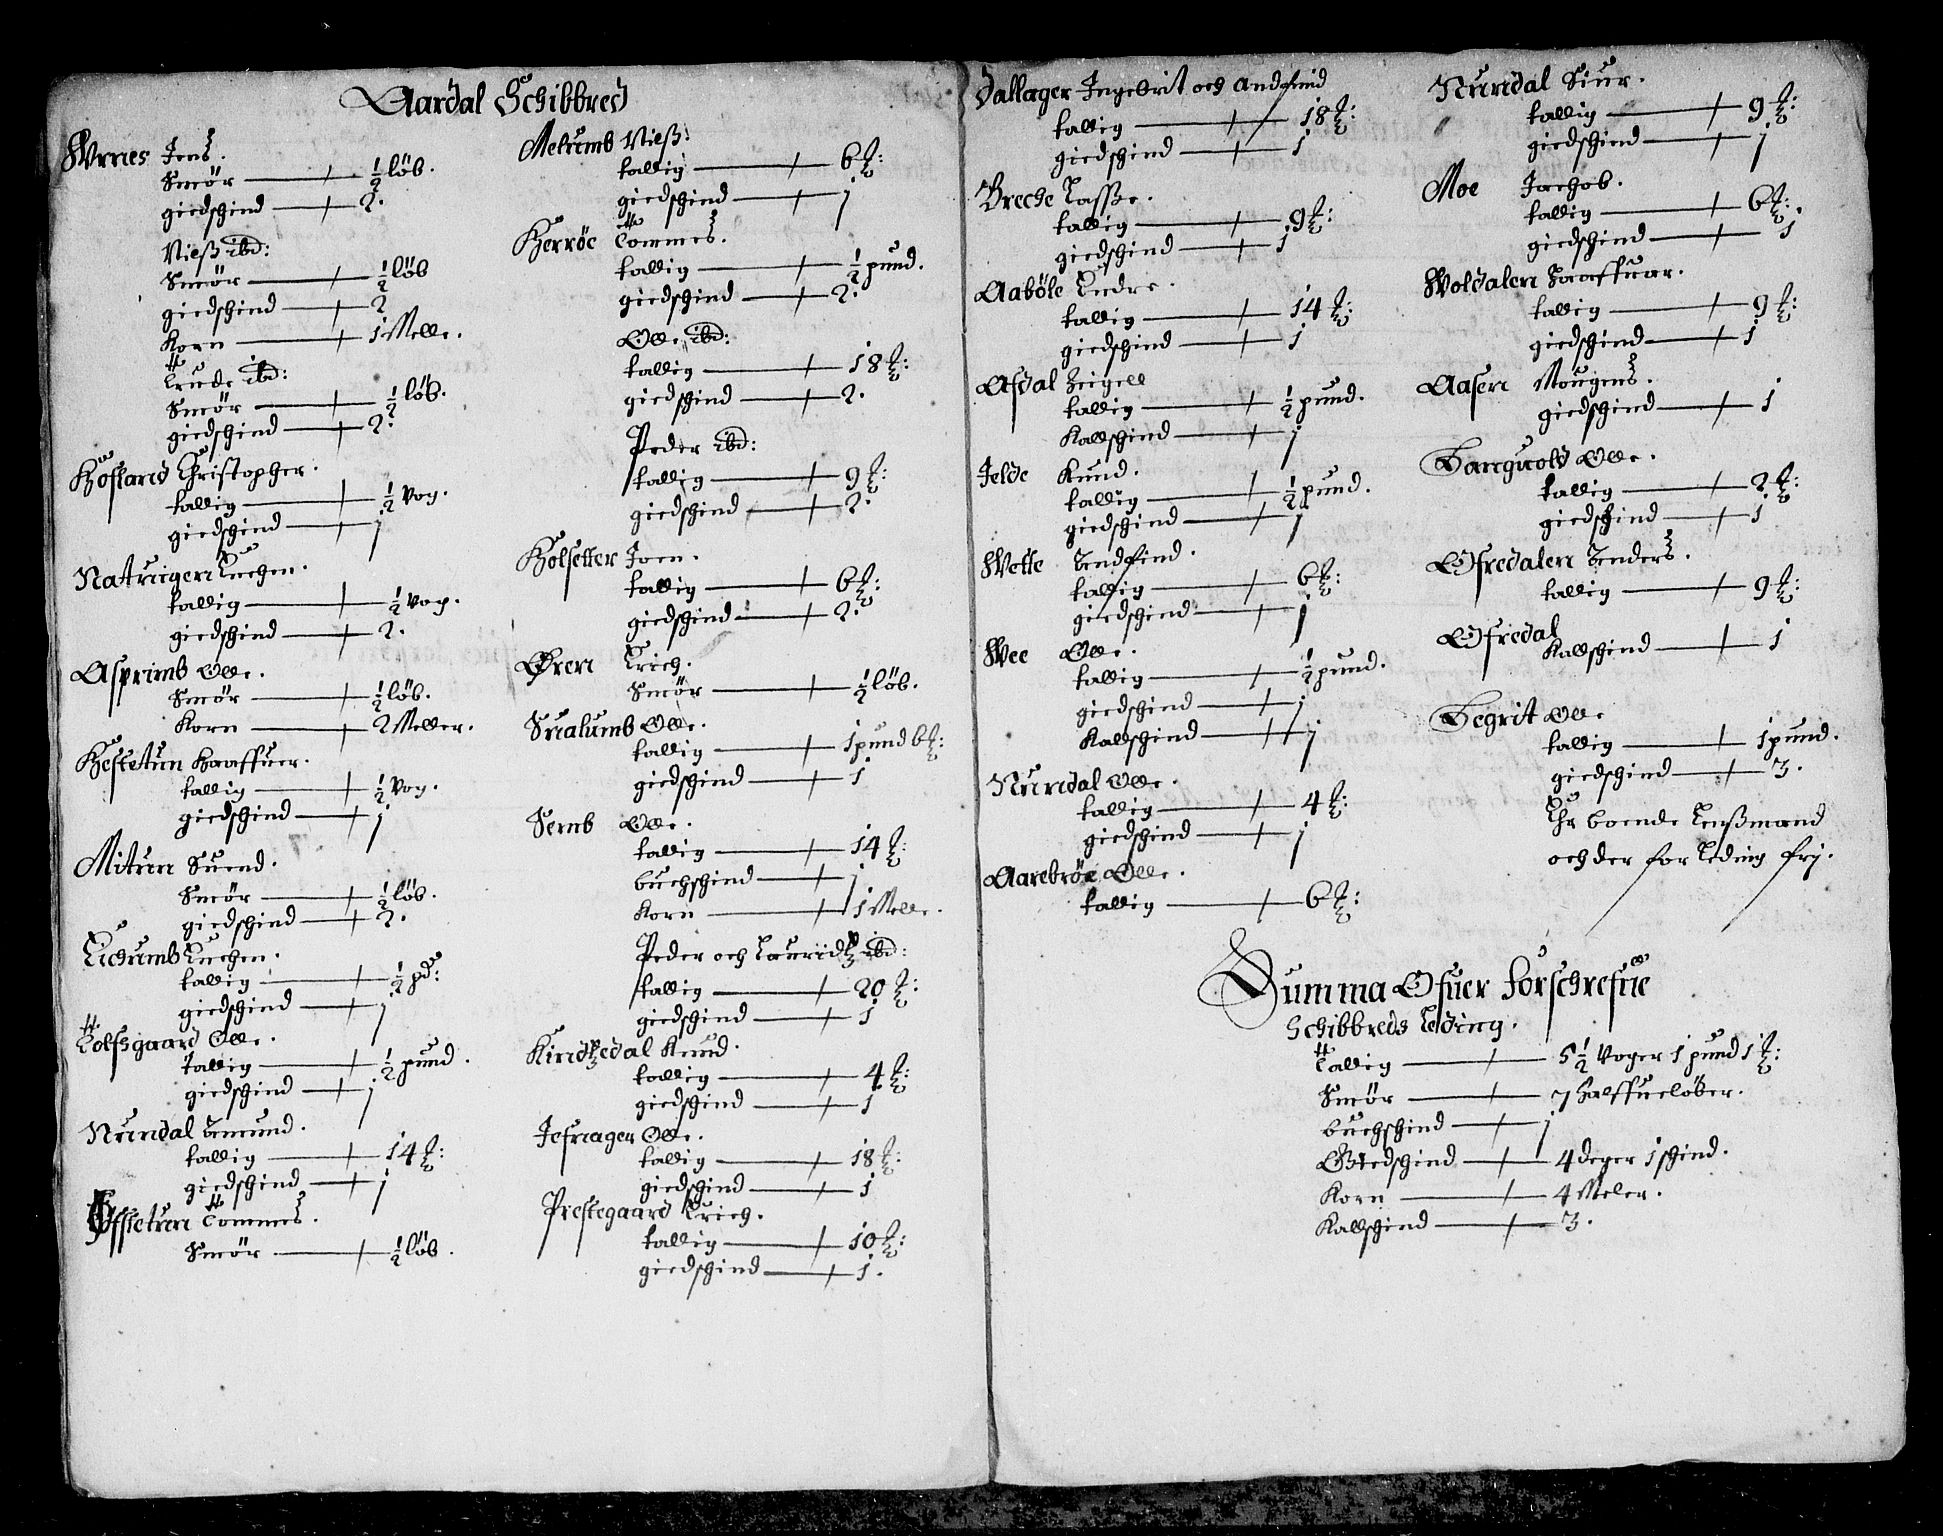 Aardal Schibbred
Wrnes Jens.
Smör ½ löb.
giedschind 2.
Nielß ibd:
Smör ½ löb
giedschind 2
Korn 1 Melle.
Trude ibd:
Smör ½ löb.
giedschind 2.
Höstand Christopher.
tallig ½ Vog.
giedschind j
Naturigen Luchen.
tallig ½ Vog.
giedschind 2.
Asprimb Olle.
Smör ½ löb.
Korn 2 Meller.
Hestetun Haaffuer.
tallig ½ Vog.
giedschind j
Mitun Suend.
Smör ½ löb.
giedschind 2.
Luchen.
tallig ½ pd:
giedschind j
Tolfsgaard Olle.
tallig ½ pund.
giedschind j
Nundal Amund.
tallig 14 ℔:
giedschind j
Tommes.
Smör ½ löb.
Melumb Nielß:
tallig 6 ℔:
giedschind j
Herröe Tommes.
tallig ½ pund.
giedschind 2.
Olle ibd:
tallig 18 ℔:
giedschind 2.
Peder ibd:
tallig 9 ℔:
giedschind 2.
Holsetter Joen.
tallig 6 ℔:
giedschind 2.
Øren Erich.
Smör ½ löb.
Sualumb Olle.
tallig 1 pund 6 ℔:
giedschind 1
Semb Olle.
tallig 14 ℔:
buchschind j
Korn 1 Melle.
Peder och Lauridtz ibd:
tallig 20 ℔:
giedschind 1
Kindtzedal Knud.
tallig 4 ℔:
giedschind 1
Jefnager Olle.
tallig 18 ℔:
giedschind 1
Prestegaard Erich.
tallig 10 ℔:
giedschind 1.
Dallager Ingebrit och Andfind
tallig 18 ℔:
giedschind 1
Breche Lasße.
tallig 9 ℔:
giedschind 1
Aaböle Endre.
tallig 14 ℔:
giedschind 1
Afdal Heigell
tallig ½ pund.
Kallschind j
Jelde Knud.
tallig ½ pund.
giedschind j
Wette Andfind.
tallig 6 ℔:
giedschind j
Wee Olle.
tallig ½ pund.
giedschind j
Kallschind j
Nundal Olle.
tallig 4 ℔:
giedschind j
Aarebröe Olle.
tallig 6 ℔:
Nundal Siur.
tallig 9 ℔:
giedschind j
Moe Jachob.
tallig 6 ℔:
giedschind 1
Woldalen Haaffuar.
tallig 9 ℔:
giedschind 1
Aasen Mougens.
giedschind 1
Hanguold Olle.
tallig 2 ℔:
giedschind 1
Ofredalen Anders.
tallig 9 ℔:
Ofredal
Kallschind 1
Hegrit Olle
tallig 1 pund.
giedschind 3.
Ehr boende Lenßmand
och der for Leding frj.
Summa Ofuer Forschrefne
Schibbreds Leding.
Tallig 5 ½ Voger 1 pund 1 ℔:
Smör 7 halffuelöber.
buchschind j
Giedschind 4 deger 1 schind.
Korn 4 Meler.
Kallschind 3.